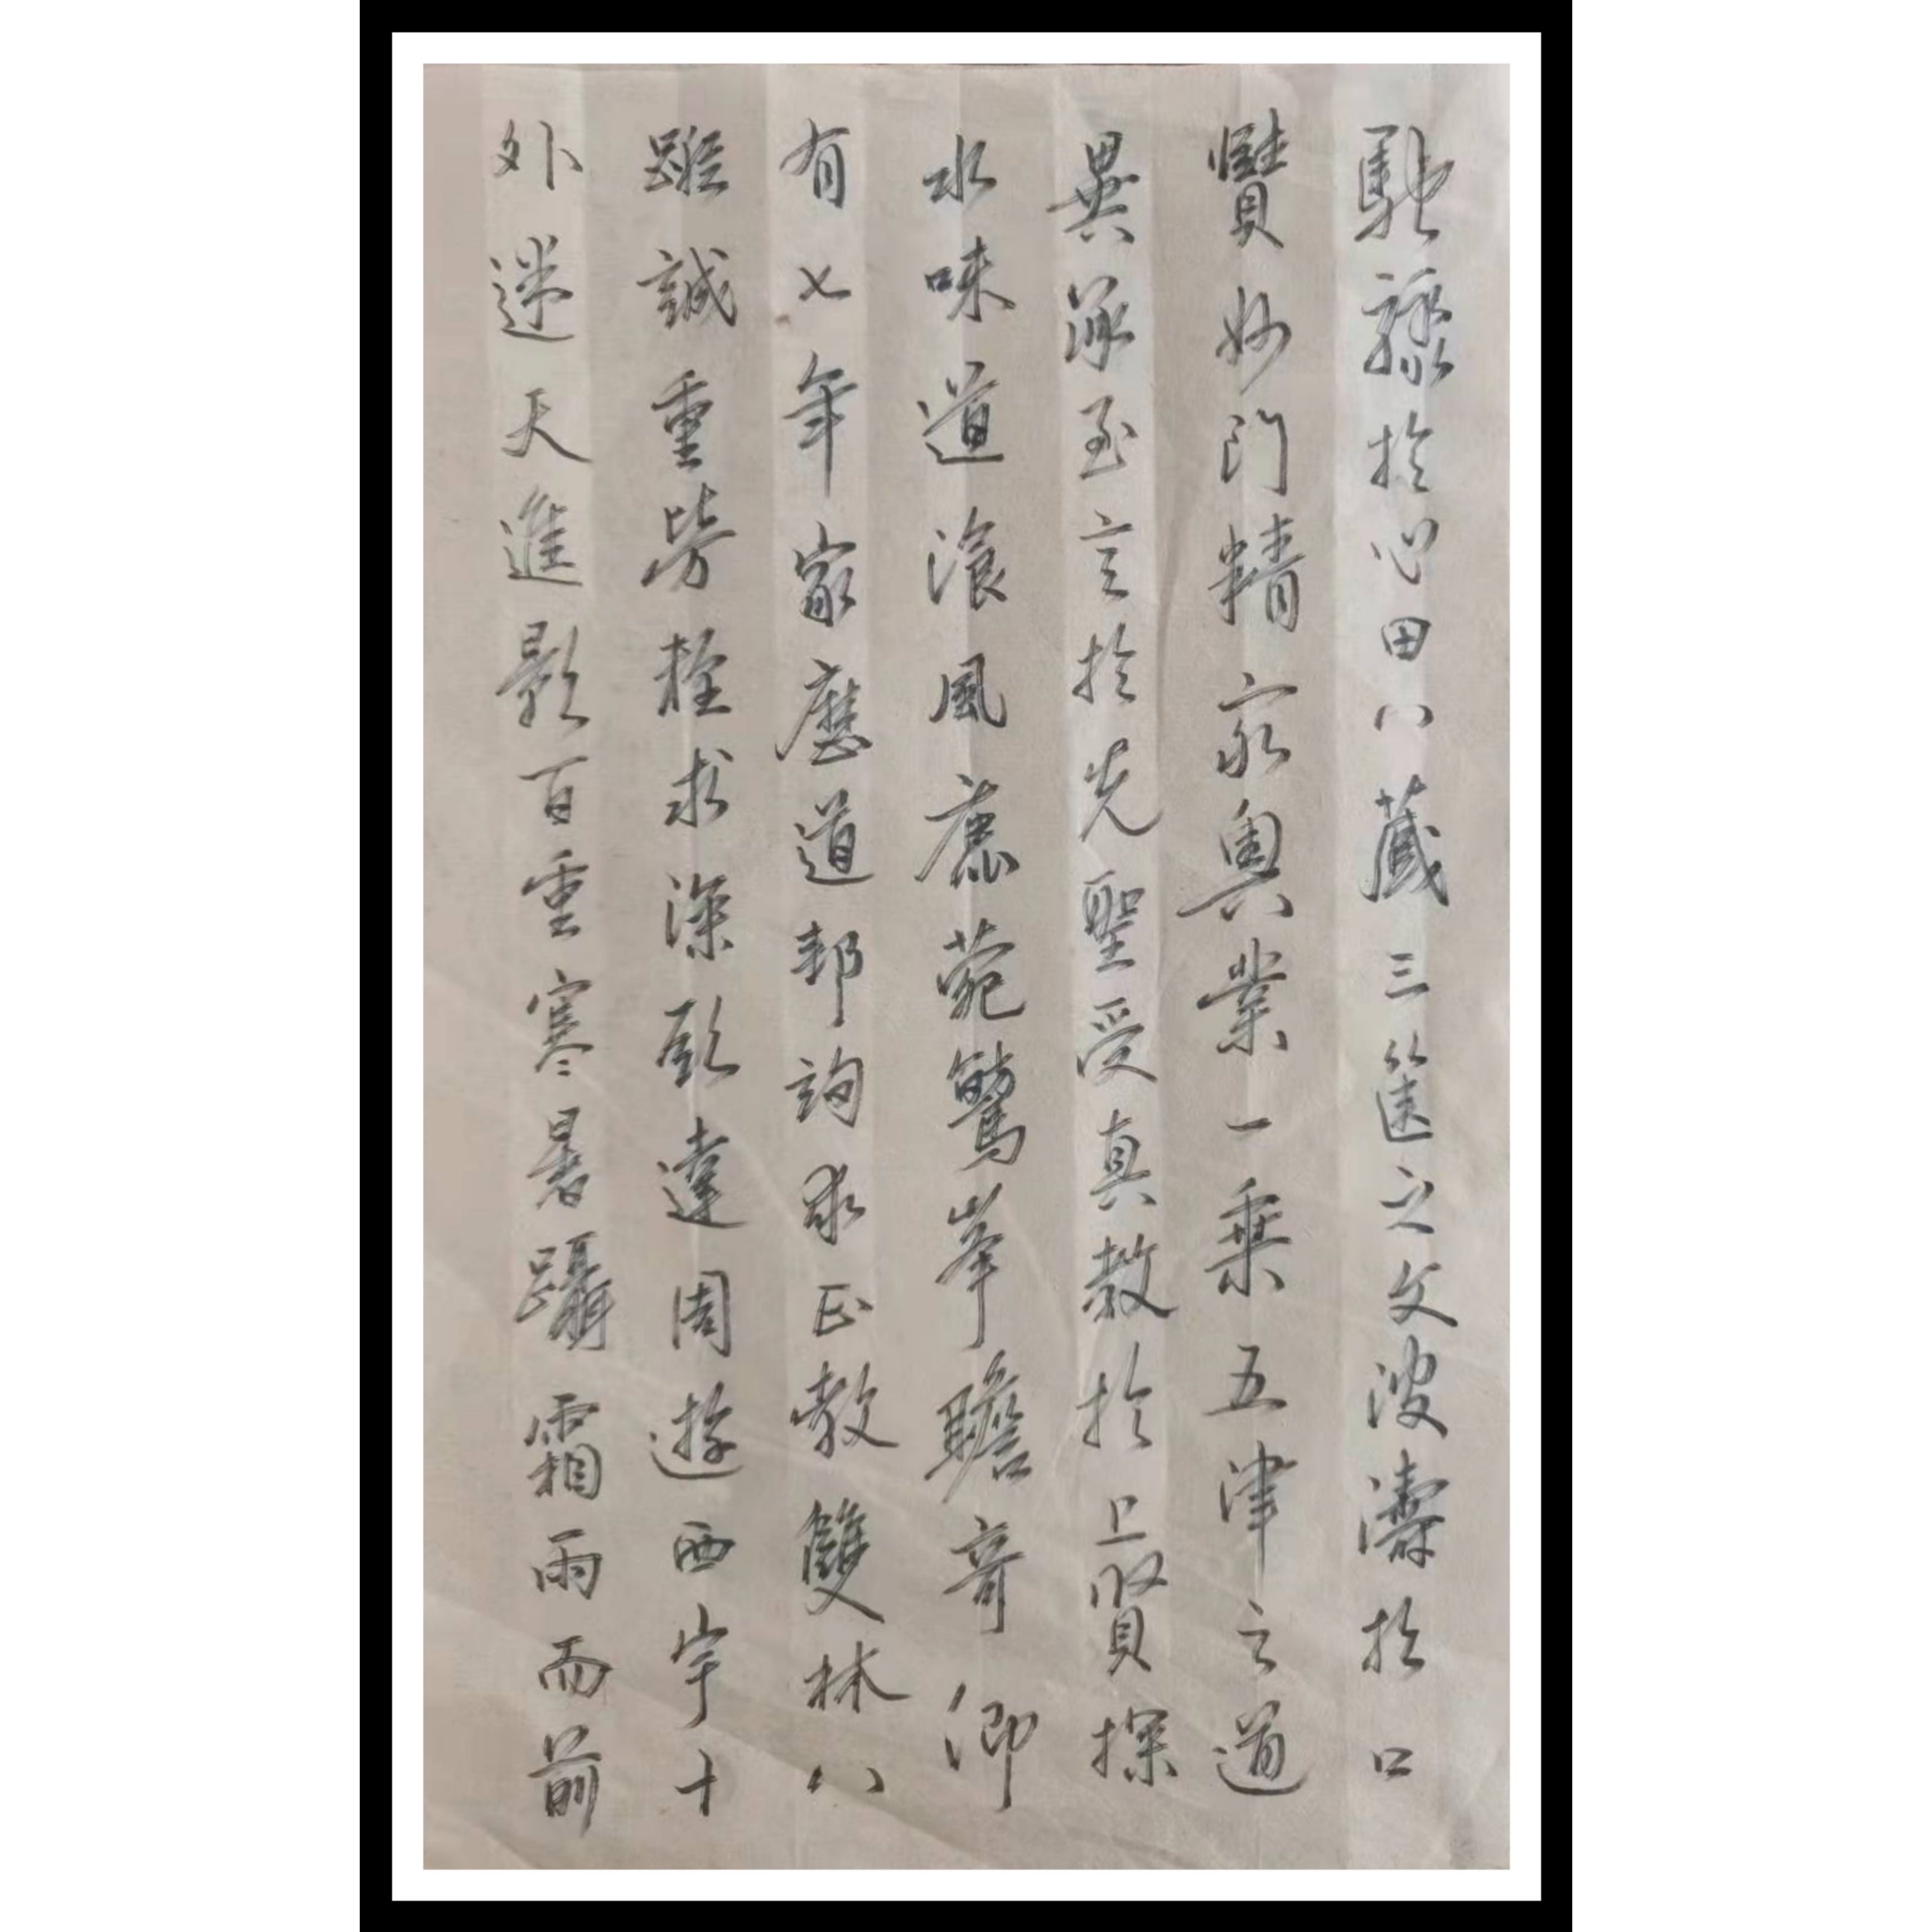 外迷天進影百重寒暑躡霜雨而前
蹤誠重勞輕求深願達周遊西宇十
有七年窮歷道邦詢求正教雙林八
水味道飡風鹿菀鷲峯瞻奇仰
異承至言於先聖受真教於上賢探
賾妙門精窮奧業一乘五律之道
馳驟於心田八藏三篋之文波濤於口